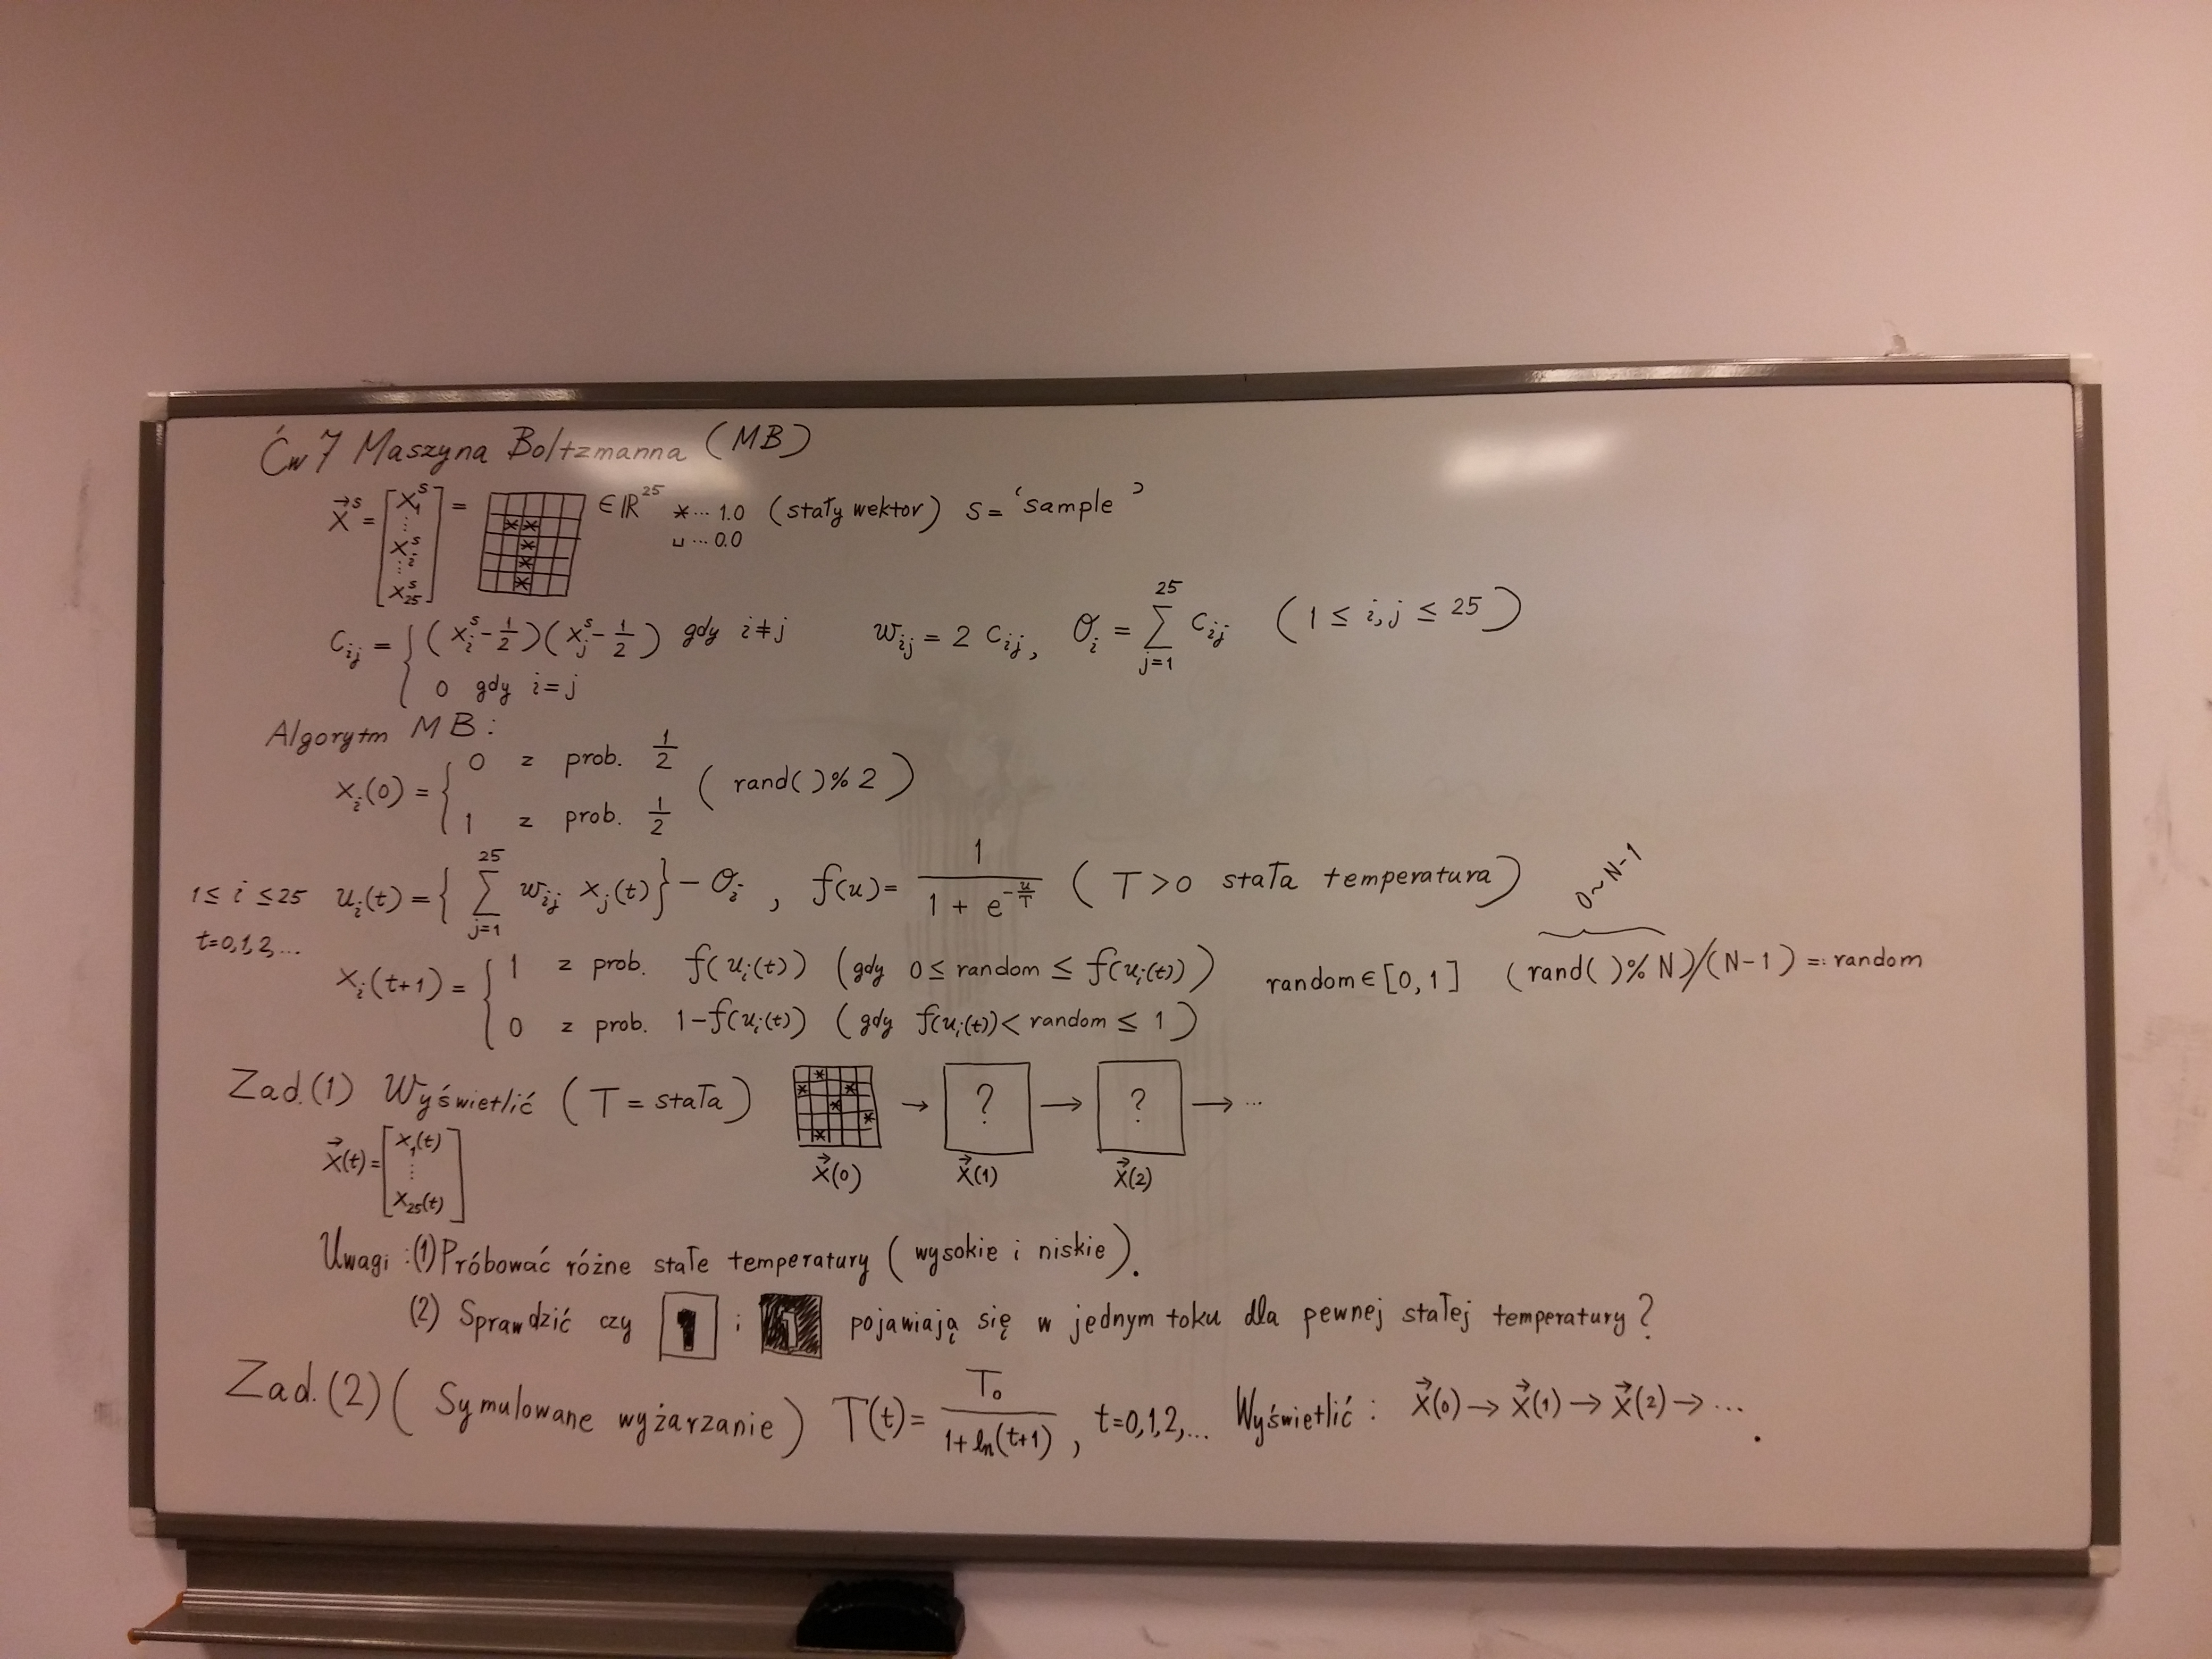 Ćw 7 Maszyna Boltzmanna (MB)
x⃗ˢ = [x₁ˢ ⋮ xᵢˢ ⋮ x₂₅ˢ] = ∈ ℝ²⁵ * ... 1.0 (stały wektor) s = 'sample'
␣ ... 0.0
cᵢⱼ = { (xᵢˢ - 1/2)(xⱼˢ - 1/2) gdy i ≠ j wᵢⱼ = 2 cᵢⱼ, θᵢ = Σ_{j=1}^{25} cᵢⱼ (1 ≤ i,j ≤ 25)
0 gdy i = j
Algorytm MB:
xᵢ(0) = { 0 z prob. 1/2 (rand()%2)
1 z prob. 1/2
1 ≤ i ≤ 25 uᵢ(t) = { Σ_{j=1}^{25} wᵢⱼ xⱼ(t) } - θᵢ, f(u) = 1/(1 + e^{-u/T}) (T > 0 stała temperatura)
t=0,1,2,...
0 ~ N-1
xᵢ(t+1) = { 1 z prob. f(uᵢ(t)) (gdy 0 ≤ random ≤ f(uᵢ(t))) random ∈ [0, 1] (rand()%N)/(N-1) =: random
0 z prob. 1-f(uᵢ(t)) (gdy f(uᵢ(t)) < random ≤ 1)
Zad.(1) Wyświetlić (T = stała) → ? → ? → ...
x⃗(t) = [x₁(t) ⋮ x₂₅(t)] x⃗(0) x⃗(1) x⃗(2)
Uwagi: (1) Próbować różne stałe temperatury (wysokie i niskie).
(2) Sprawdzić czy 1 i 1 pojawiają się w jednym toku dla pewnej stałej temperatury?
Zad.(2) (Symulowane wyżarzanie) T(t) = T₀/(1+ln(t+1)), t=0,1,2,... Wyświetlić: x⃗(0) → x⃗(1) → x⃗(2) → ... .